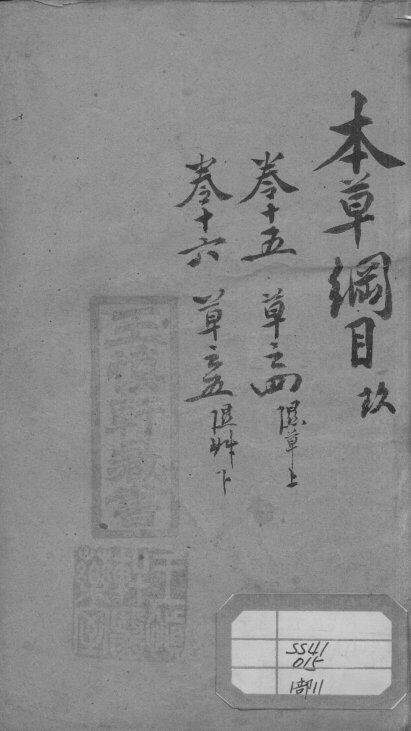 本草綱目 玖
卷十五 草之四 隰草上
卷十六 草之五 隰艸下
SS41
015
1部11